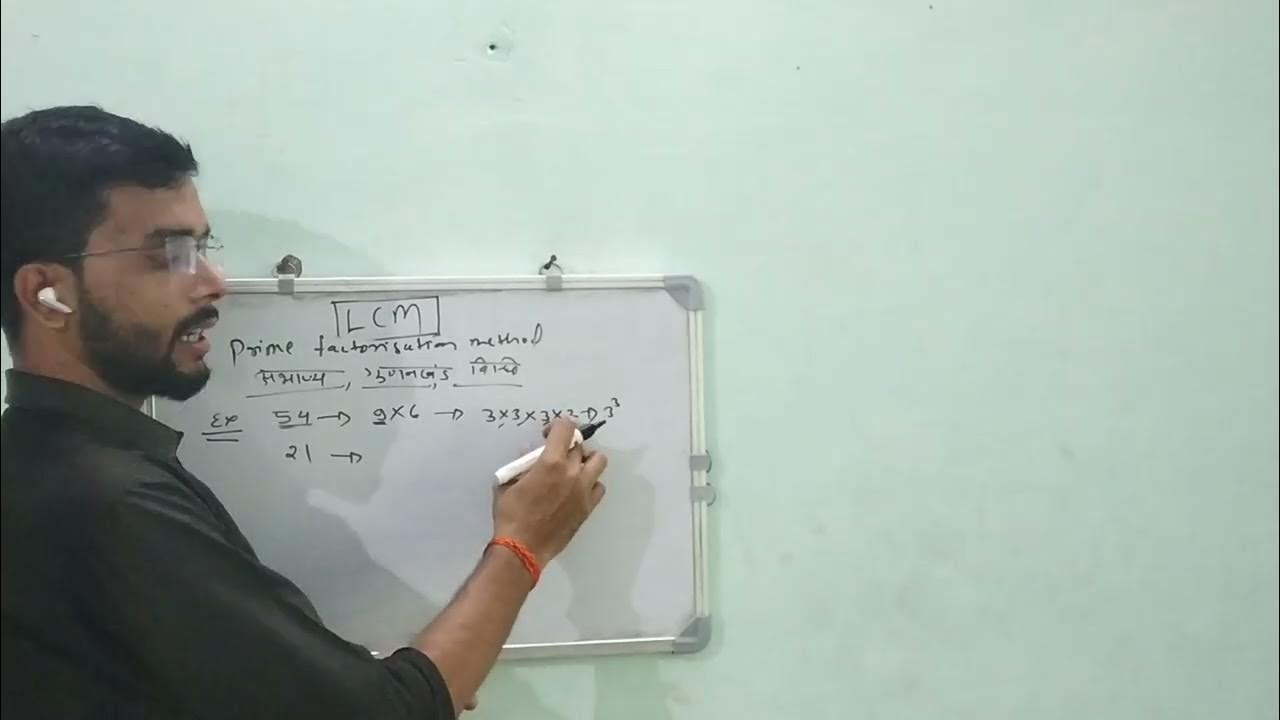 LCM
Prime factorisation method
अभाज्य, गुणनखंड, विधि
Ex 54 → 9×6 → 3×3×3×2 → 3³
21 →